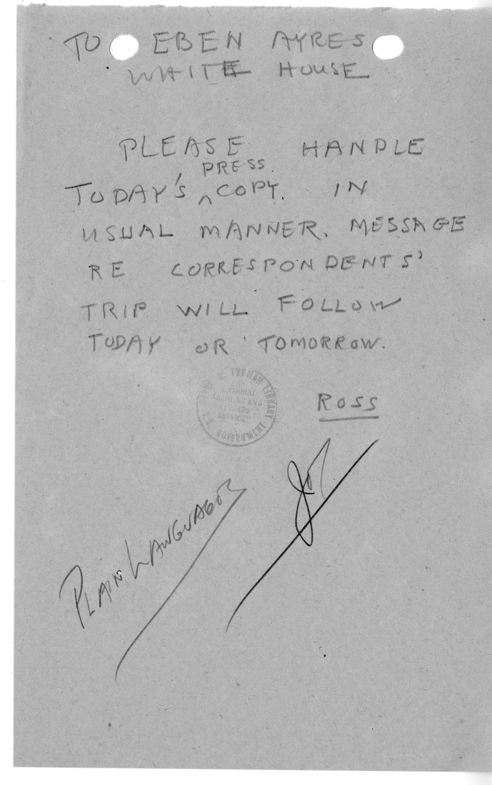 TO EBEN AYRES
WHITE HOUSE
PLEASE HANDLE
PRESS
TODAY'S ^ COPY. IN
USUAL MANNER. MESSAGE
RE CORRESPONDENTS'
TRIP WILL FOLLOW
TODAY OR TOMORROW.
TRUMAN LIBRARY
GOVERNMENT
ROSS
PLAIN LANGUAGE